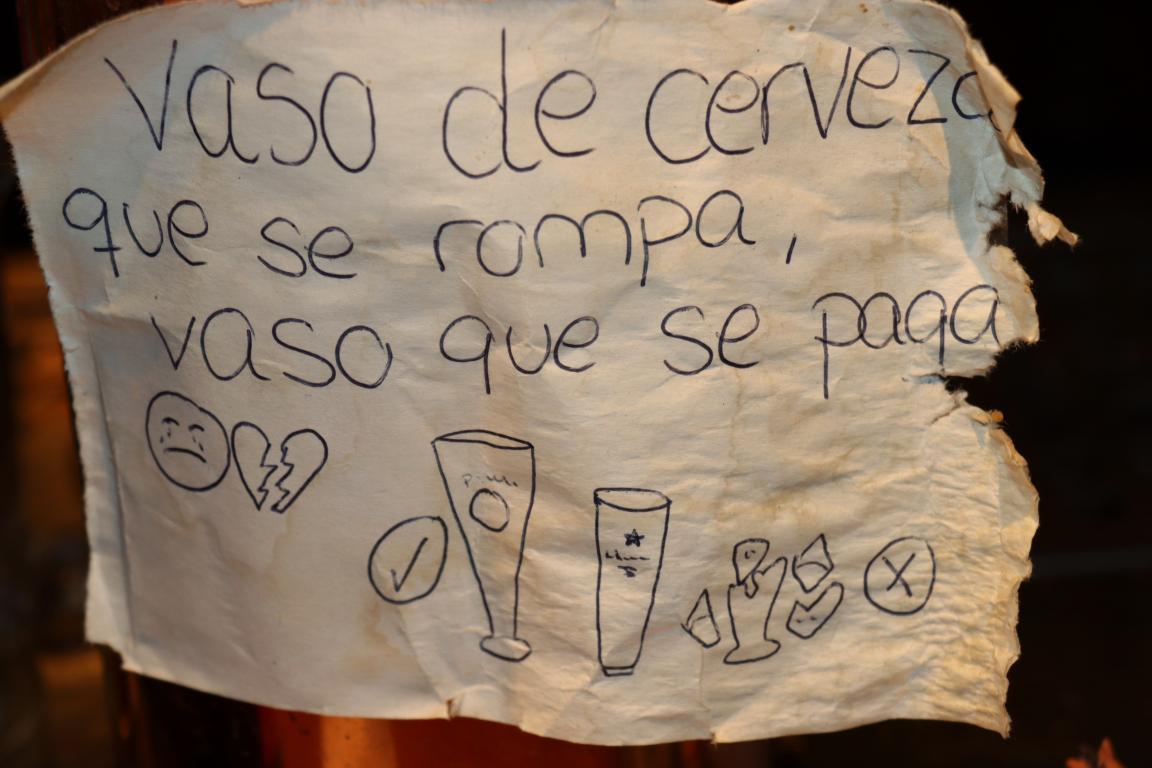 Vaso de cerveza
que se rompa,
vaso que se paga